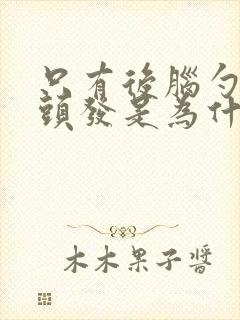 只有後腦勺
頭發是為什
木木果子醬